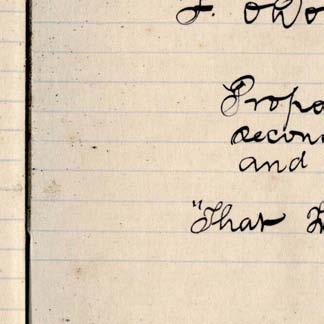 J. O'Do
Propo
Second
and
"That